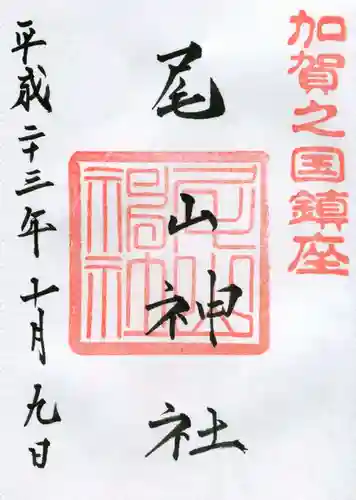 加賀之国鎮座
尾山神社
尾山神社
平成二十三年十月九日